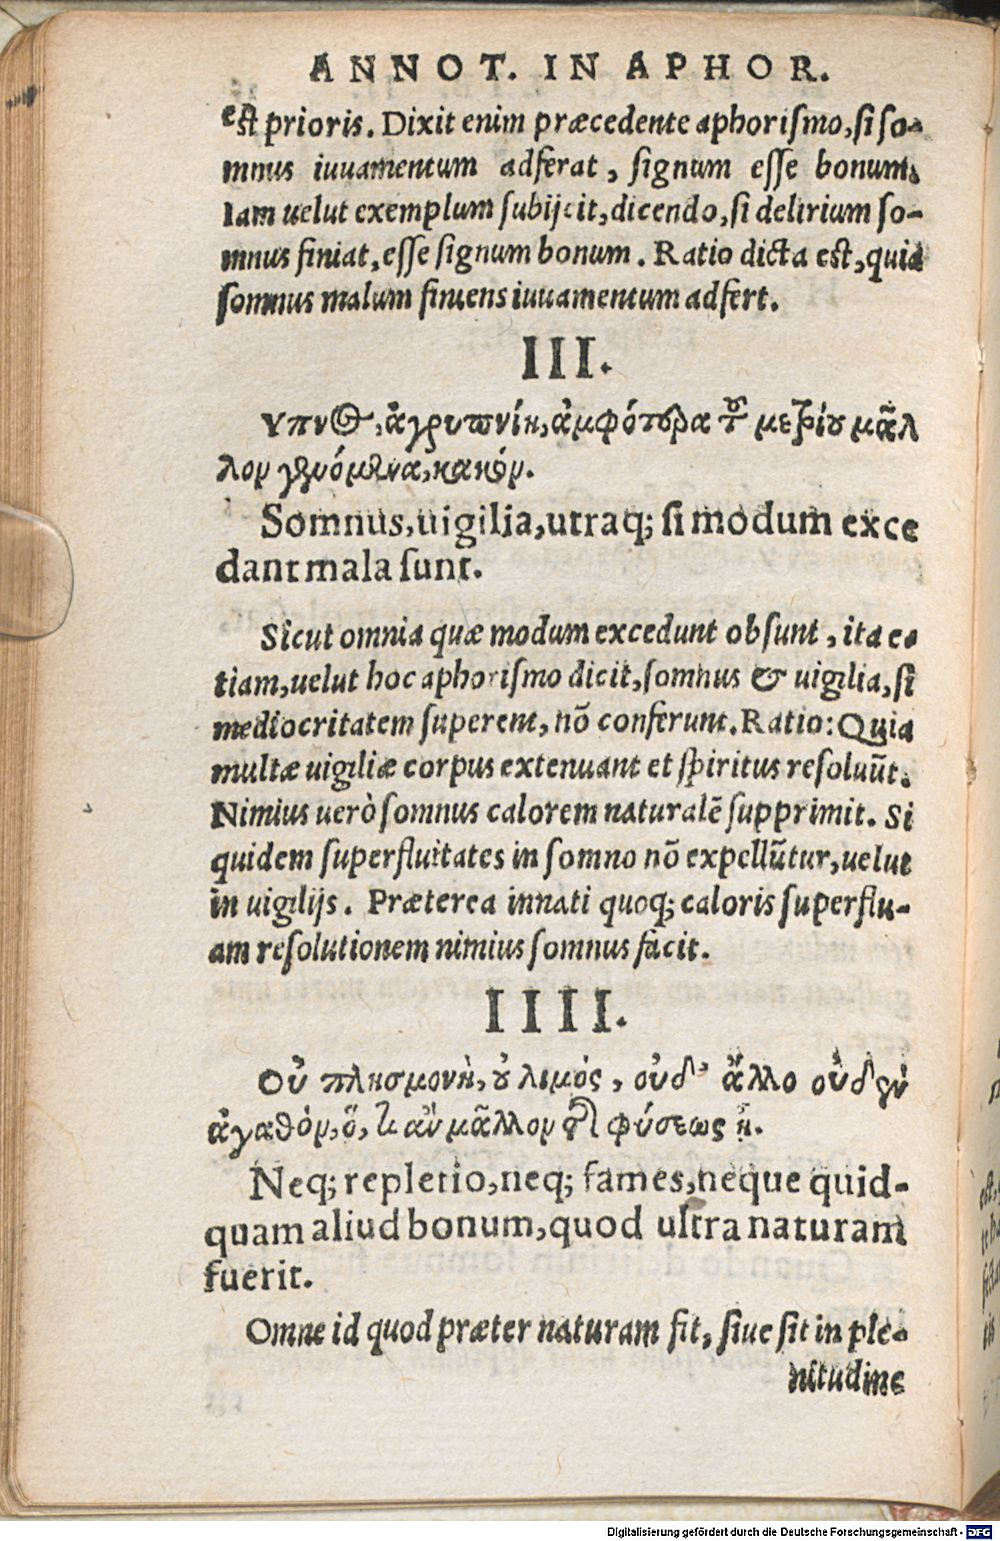 ANNOT. IN APHOR.
est prioris. Dixit enim præcedente aphorismo, si so-
mnus iuuamentum adferat, signum esse bonum.
Iam uelut exemplum subijcit, dicendo, si delirium so-
mnus finiat, esse signum bonum. Ratio dicta est, quia
somnus malum finiens iuuamentum adfert.
III.
Υπνος, ἀγρυπνίη, ἀμφότερα τοῦ μετρίου μᾶλ
λον γενόμενα, κακόν.
Somnus, uigilia, utraq; si modum exce
dant mala sunt.
Sicut omnia quæ modum excedunt obsunt, ita e-
tiam, uelut hoc aphorismo dicit, somnus & uigilia, si
mediocritatem superent, nõ conferunt. Ratio: Quia
multæ uigiliæ corpus extenuant et spiritus resoluũt.
Nimius uerò somnus calorem naturalẽ supprimit. Si
quidem superfluitates in somno nõ expellũtur, uelut
in uigilijs. Præterea innati quoq; caloris superflu-
am resolutionem nimius somnus facit.
IIII.
Οὐ πλησμονὴ, οὐ λιμός, οὐδ' ἄλλο οὐδὲν
ἀγαθόν, ὅ, τι ἂν μᾶλλον τῆς φύσεως ᾖ.
Neq; repletio, neq; fames, neque quid-
quam aliud bonum, quod ultra naturam
fuerit.
Omne id quod præter naturam fit, siue sit in ple-
nitudine
Digitalisierung gefördert durch die Deutsche Forschungsgemeinschaft - DFG